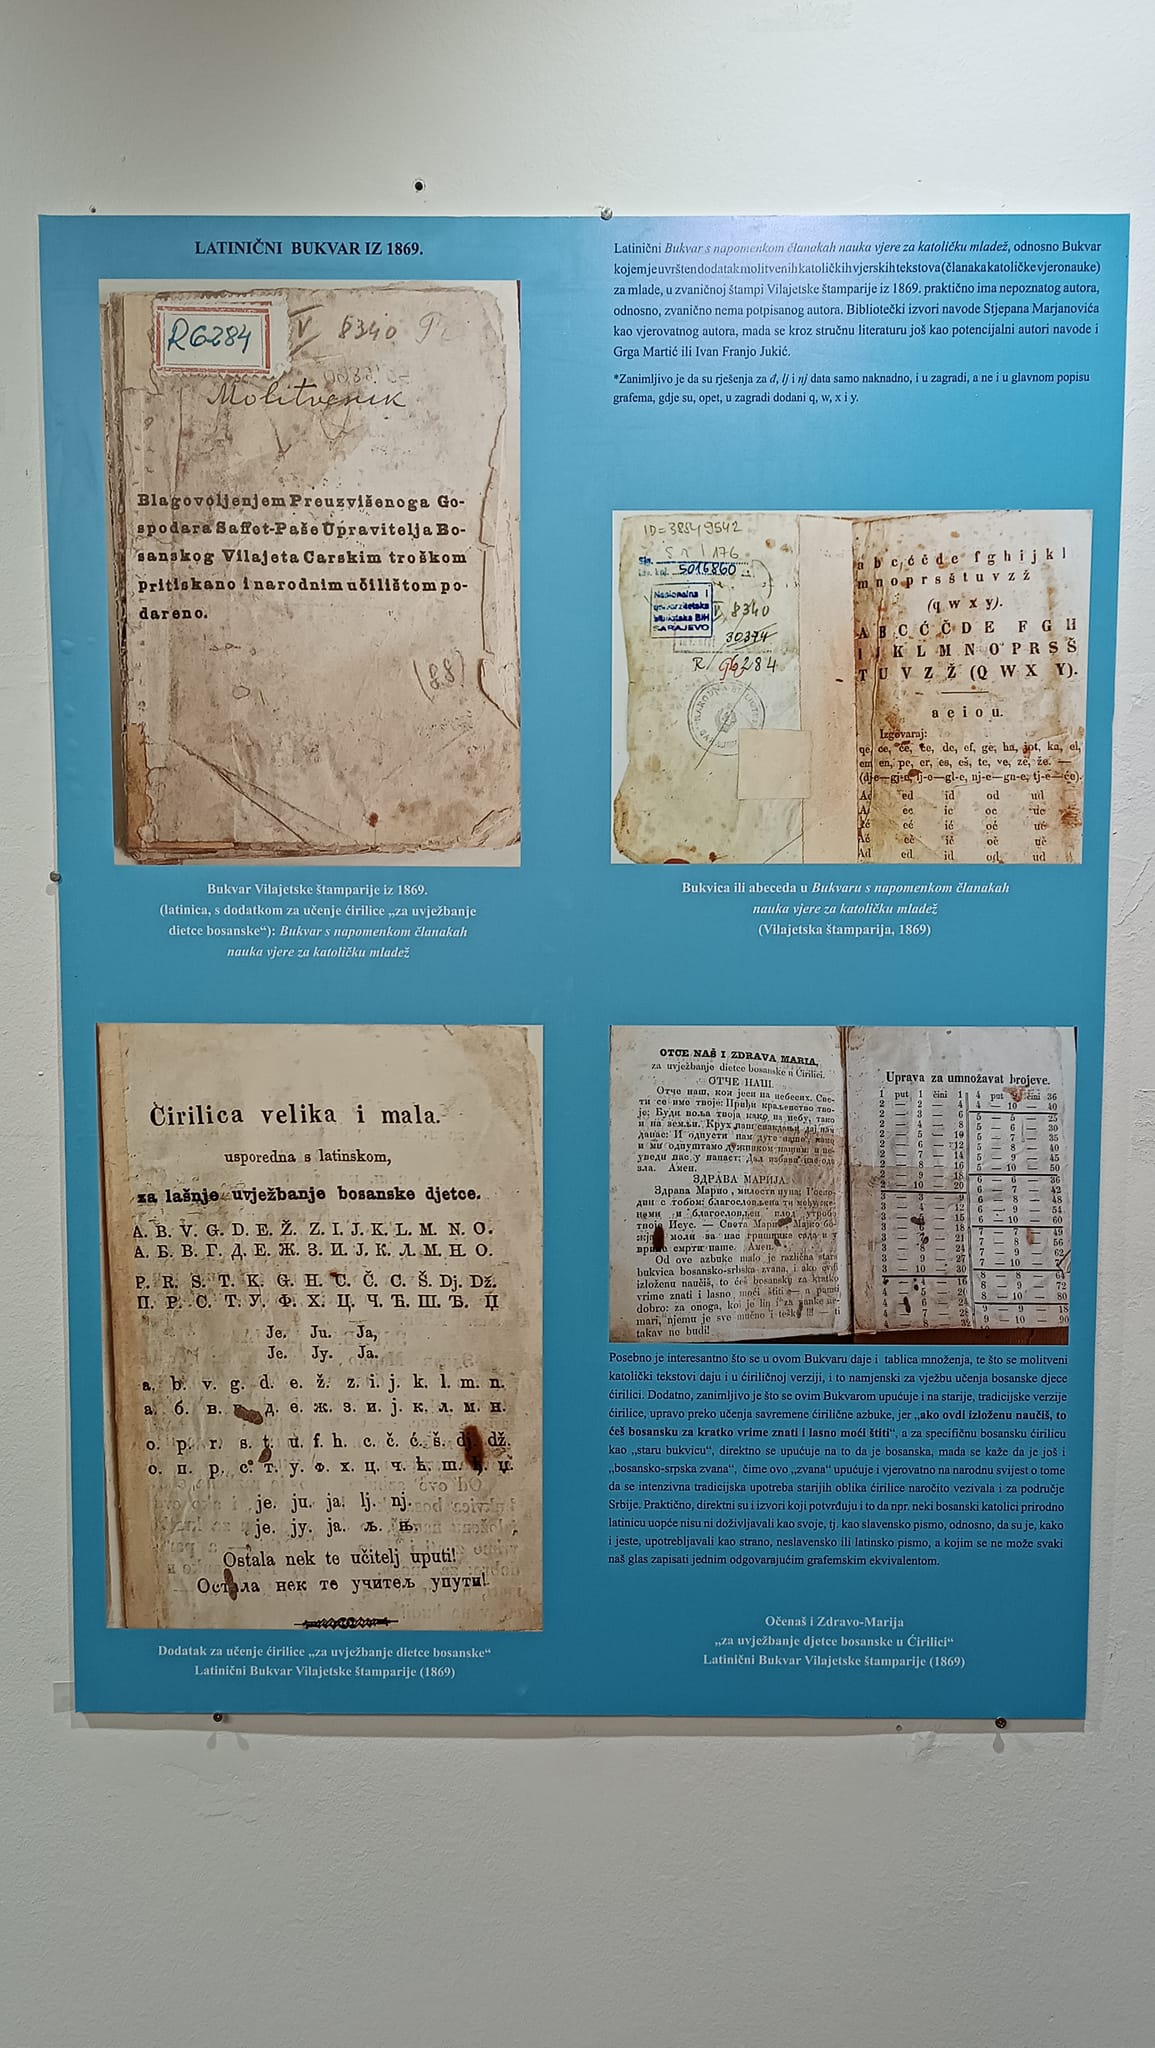 LATINIČNI BUKVAR IZ 1869.
R6284
V 8340
Molitvenik
Blagovoljenjem Preuzvišenoga Go-
spodara Saffet-Paše Upravitelja Bo-
sanskog Vilajeta Carskim troškom
pritiskano i narodnim učilištom po-
dareno.
(88)
Bukvar Vilajetske štamparije iz 1869.
(latinica, s dodatkom za učenje ćirilice „za uvježbanje
dietce bosanske“): Bukvar s napomenkom članakah
nauka vjere za katoličku mladež
Latinični Bukvar s napomenkom članakah nauka vjere za katoličku mladež, odnosno Bukvar
kojem je uvršten dodatak molitvenih katoličkih vjerskih tekstova (članaka katoličke vjeronauke)
za mlade, u zvaničnoj štampi Vilajetske štamparije iz 1869. praktično ima nepoznatog autora,
odnosno, zvanično nema potpisanog autora. Bibliotečki izvori navode Stjepana Marjanovića
kao vjerovatnog autora, mada se kroz stručnu literaturu još kao potencijalni autori navode i
Grga Martić ili Ivan Franjo Jukić.
*Zanimljivo je da su rješenja za đ, lj i nj data samo naknadno, i u zagradi, a ne i u glavnom popisu
grafema, gdje su, opet, u zagradi dodani q, w, x i y.
ID=38549542
5016860
Nacionalna i
univerzitetska
biblioteka BiH
SARAJEVO
V 8340
30374
R/ 96284
a b c ć č d e f g h i j k l
m n o p r s š t u v z ž
(q w x y).
A B C Ć Č D E F G H
I J K L M N O P R S Š
T U V Z Ž (Q W X Y).
a e i o u.
Izgovaraj:
ce, če, će, de, ef, ge, ha, jot, ka, el,
em en, pe, er, es, eš, te, ve, ze, že. —
lj-e—gl-e, nj-e—gn-e, tj-e—će).
ed id od ud
ec ic oc uc
eć ić oć uć
eč ič oč uč
Ad ed id od ud
Bukvica ili abeceda u Bukvaru s napomenkom članakah
nauka vjere za katoličku mladež
(Vilajetska štamparija, 1869)
Ćirilica velika i mala.
usporedna s latinskom,
za lašnje uvježbanje bosanske djetce.
A. B. V. G. D. E. Ž. Z. I. J. K. L. M. N. O.
А. Б. В. Г. Д. Е. Ж. З. И. Ј. К. Л. М. Н. О.
P. R. S. T. K. G. H. C. Č. C. Š. Dj. Dž.
П. Р. С. Т. У. Ф. Х. Ц. Ч. Ћ. Ш. Ђ. Џ
Je. Ju. Ja,
Је. Јy. Ја.
a. b. v. g. d. e. ž. z. i. j. k. l. m. n.
а. б. в. д. е. ж. з. и. ј. к. л. м. н.
o. p. r. s. t. u. f. h. c. č. ć. š. dj. dž.
о. п. р. с. т. у. ф. х. ц. ч. ћ. ш. ђ. џ.
je. ju. ja. lj. nj.
је. јy. ја. љ. њ.
Ostala nek te učitelj uputi!
Остала нек те учитељ упути!
Dodatak za učenje ćirilice „za uvježbanje dietce bosanske“
Latinični Bukvar Vilajetske štamparije (1869)
OTCE NAŠ I ZDRAVA MARIA,
za uvježbanje dietce bosanske u Ćirilici.
ОТЧЕ НАШ.
Отче наш, кои јеси на небесих. Све-
ти се име твоје: Приђи краљевство тво-
је: Буди воља твоја како на небу, тако
и на земљи. Крух наш свакдањи дај нам
данас: И одпусти нам дуге наше, како
и ми одпуштамо дужником нашим: и не
уведи нас у напаст: Дал избави нас ода
зла. Амен.
ЗДРАВА МАРИЈА.
Здрава Марио, милости пуна: Госпо-
дин с тобом: благословљена ти међу же-
нами и благословљен плод утробе
твоје Исус. — Света Марио Мајко бо-
жја моли за нас гришнике сада и у
врime смрти наше. Амен.
Od ove azbuke malo je različna stara
bukvica bosansko-srbska zvana, i ako ovdi
izloženu naučiš, to ćeš bosansku za kratko
vrime znati i lasno moći štiti — a pamti
dobro: za onoga, koi je lin i za nauke ne-
mari, njemu je sve mučno i teško !!! — ti
takav ne budi!
Uprava za umnožavat brojeve.
1 put 1 čini 1 4 put čini 36
2 — 2 — 4 4 — 10 — 40
2 — 3 — 6 5 — 5 — 25
2 — 4 — 8 5 — 6 — 30
2 — 5 — 10 5 — 7 — 35
2 — 6 — 12 5 — 8 — 40
2 — 7 — 14 5 — 9 — 45
2 — 8 — 16 5 — 10 — 50
2 — 9 — 18 6 — 6 — 36
2 — 10 — 20 6 — 7 — 42
3 — 3 — 9 6 — 8 — 48
3 — 4 — 12 6 — 9 — 54
3 — 5 — 15 6 — 10 — 60
3 — 6 — 18 7 — 7 — 49
3 — 7 — 21 7 — 8 — 56
3 — 8 — 24 7 — 9 — 62
3 — 9 — 27 7 — 10 —
3 — 10 — 30 8 — 8 — 64
4 — 4 — 16 8 — 9 — 72
4 — 5 — 20 8 — 10 — 80
4 — 6 — 24 9 — 9 — 18
4 — 7 — 28 9 — 10 — 90
4 — 8 — 32
Posebno je interesantno što se u ovom Bukvaru daje i tablica množenja, te što se molitveni
katolički tekstovi daju i u ćiriličnoj verziji, i to namjenski za vježbu učenja bosanske djece
ćirilici. Dodatno, zanimljivo je što se ovim Bukvarom upućuje i na starije, tradicijske verzije
ćirilice, upravo preko učenja savremene ćirilične azbuke, jer „ako ovdi izloženu naučiš, to
ćeš bosansku za kratko vrime znati i lasno moći štiti“, a za specifičnu bosansku ćirilicu
kao „staru bukvicu“, direktno se upućuje na to da je bosanska, mada se kaže da je još i
„bosansko-srpska zvana“, čime ovo „zvana“ upućuje i vjerovatno na narodnu svijest o tome
da se intenzivna tradicijska upotreba starijih oblika ćirilice naročito vezivala i za područje
Srbije. Praktično, direktni su i izvori koji potvrđuju i to da npr. neki bosanski katolici prirodno
latinicu uopće nisu ni doživljavali kao svoje, tj. kao slavensko pismo, odnosno, da su je, kako
i jeste, upotrebljavali kao strano, neslavensko ili latinsko pismo, a kojim se ne može svaki
naš glas zapisati jednim odgovarajućim grafemskim ekvivalentom.
Očenaš i Zdravo-Marija
„za uvježbanje djetce bosanske u Ćirilici“
Latinični Bukvar Vilajetske štamparije (1869)